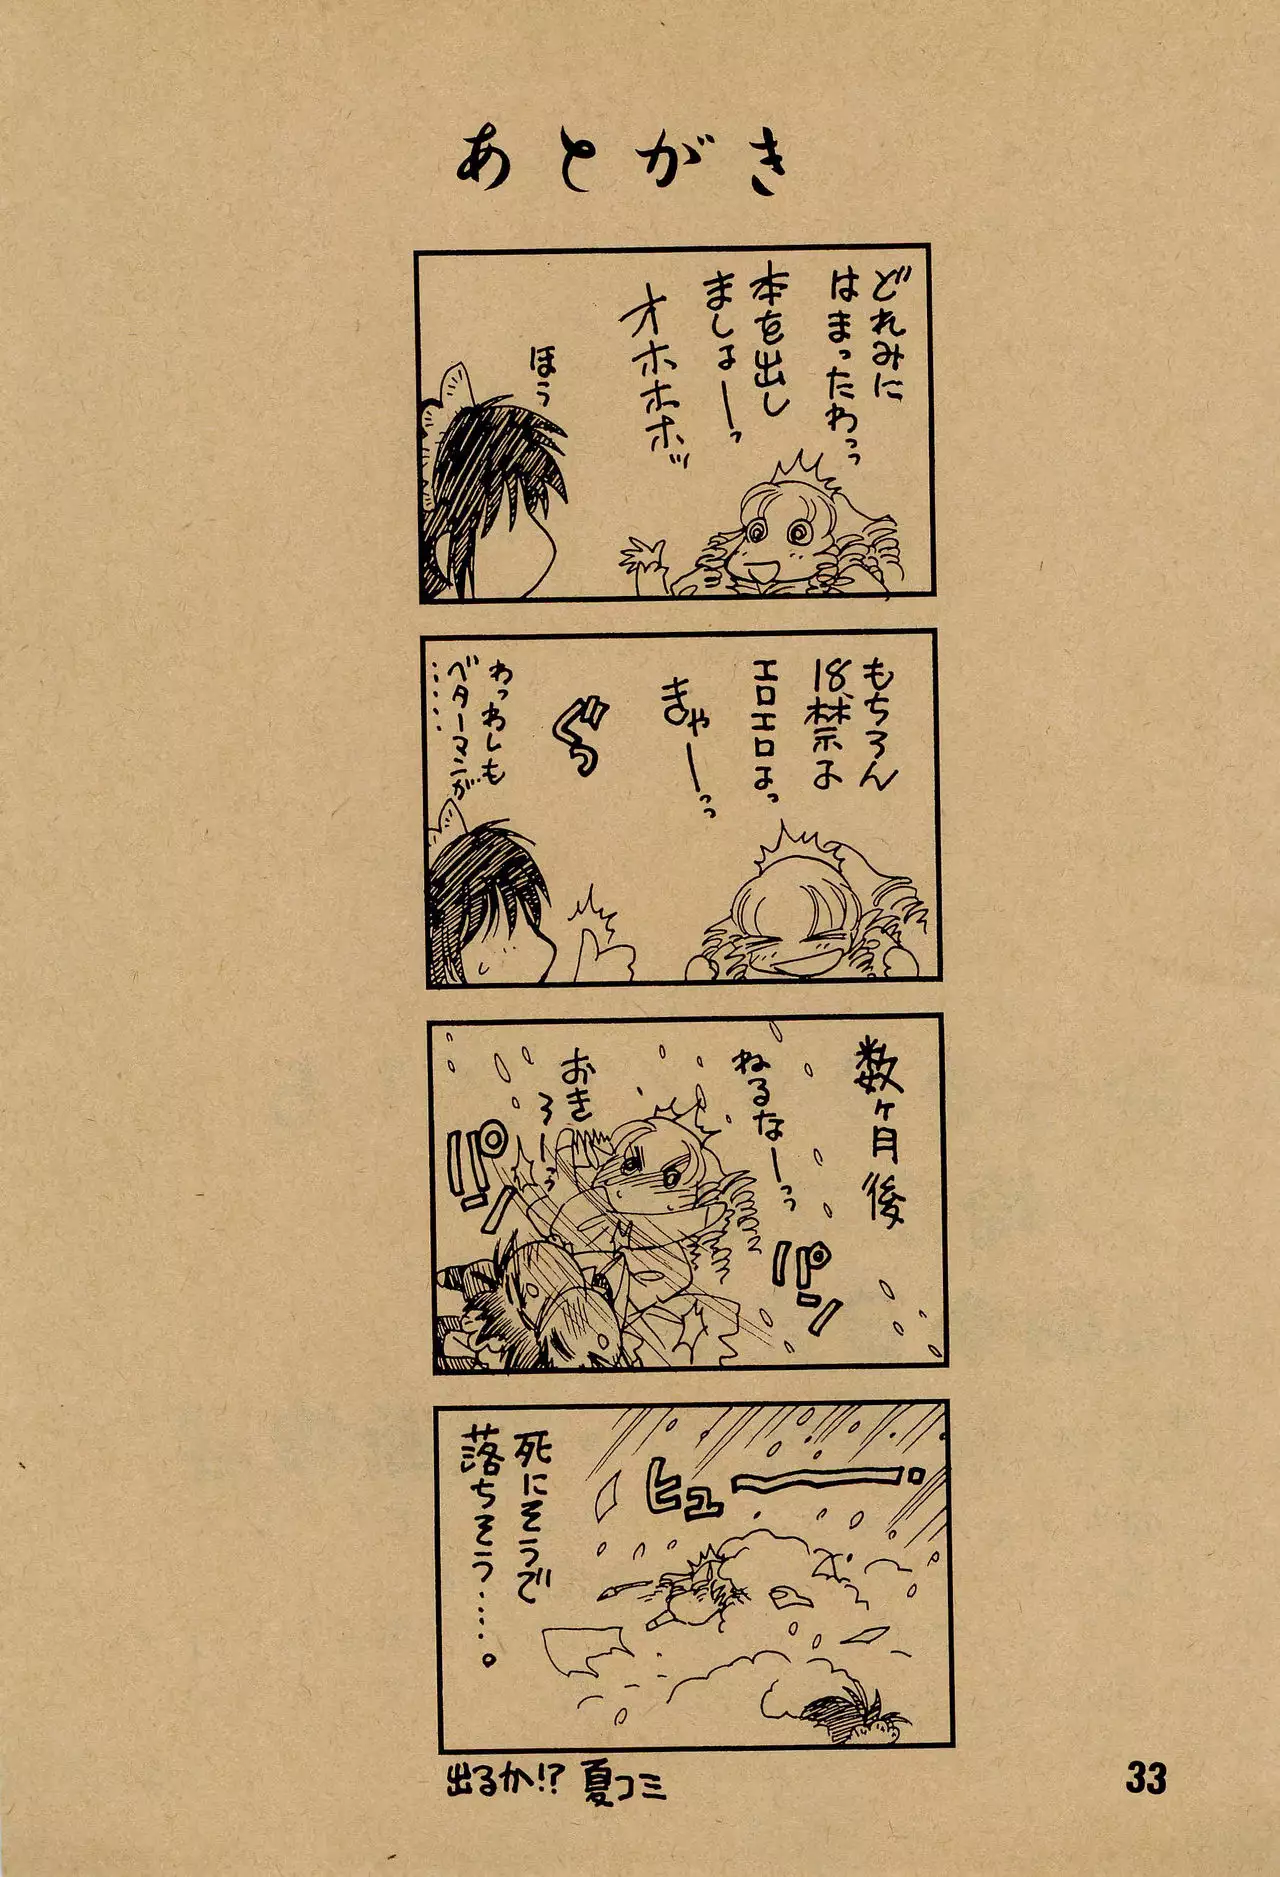 あとがき
どれみに
はまったわっっ
本を出し
ましょーっ
オホホホッ
ほう
もちろん
18禁よ
エロエロよっ
きゃーっっ
ぐっ
わっわしも
ベターマンが…
……
数ヶ月後
ねるなーっっ
おき
ろーっっ
パン
パン
ヒュー
死にそうで
落ちそう……。
出るか!? 夏コミ
33